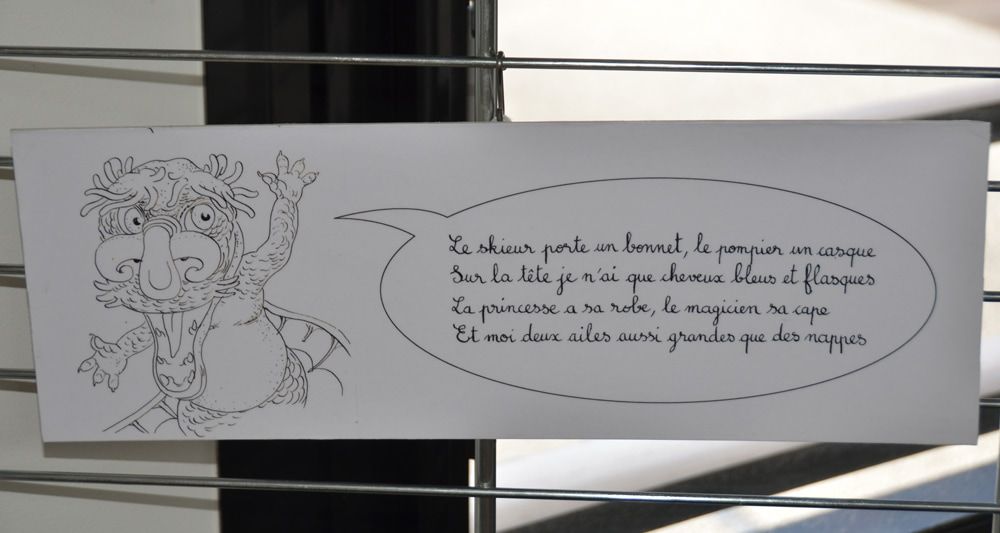 Le skieur porte un bonnet, le pompier un casque
Sur la tête je n'ai que cheveux bleus et flasques
La princesse a sa robe, le magicien sa cape
Et moi deux ailes aussi grandes que des nappes